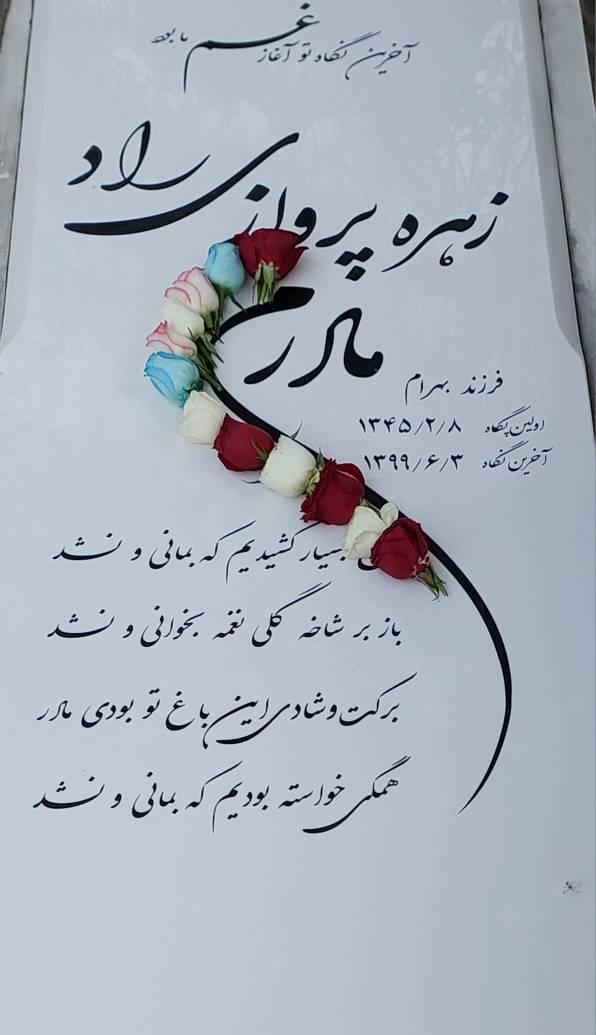 آخرین نگاه تو آغاز غم ما بود
زهره پروازی راد
مادرم
فرزند بهرام
اولین پگاه ۱۳۴۵/۲/۸
آخرین نگاه ۱۳۹۹/۶/۳
بسیار کشیدیم که بمانی و نشد
باز بر شاخه گلی نغمه بخوانی و نشد
برکت و شادی این باغ تو بودی مادر
همگی خواسته بودیم که بمانی و نشد